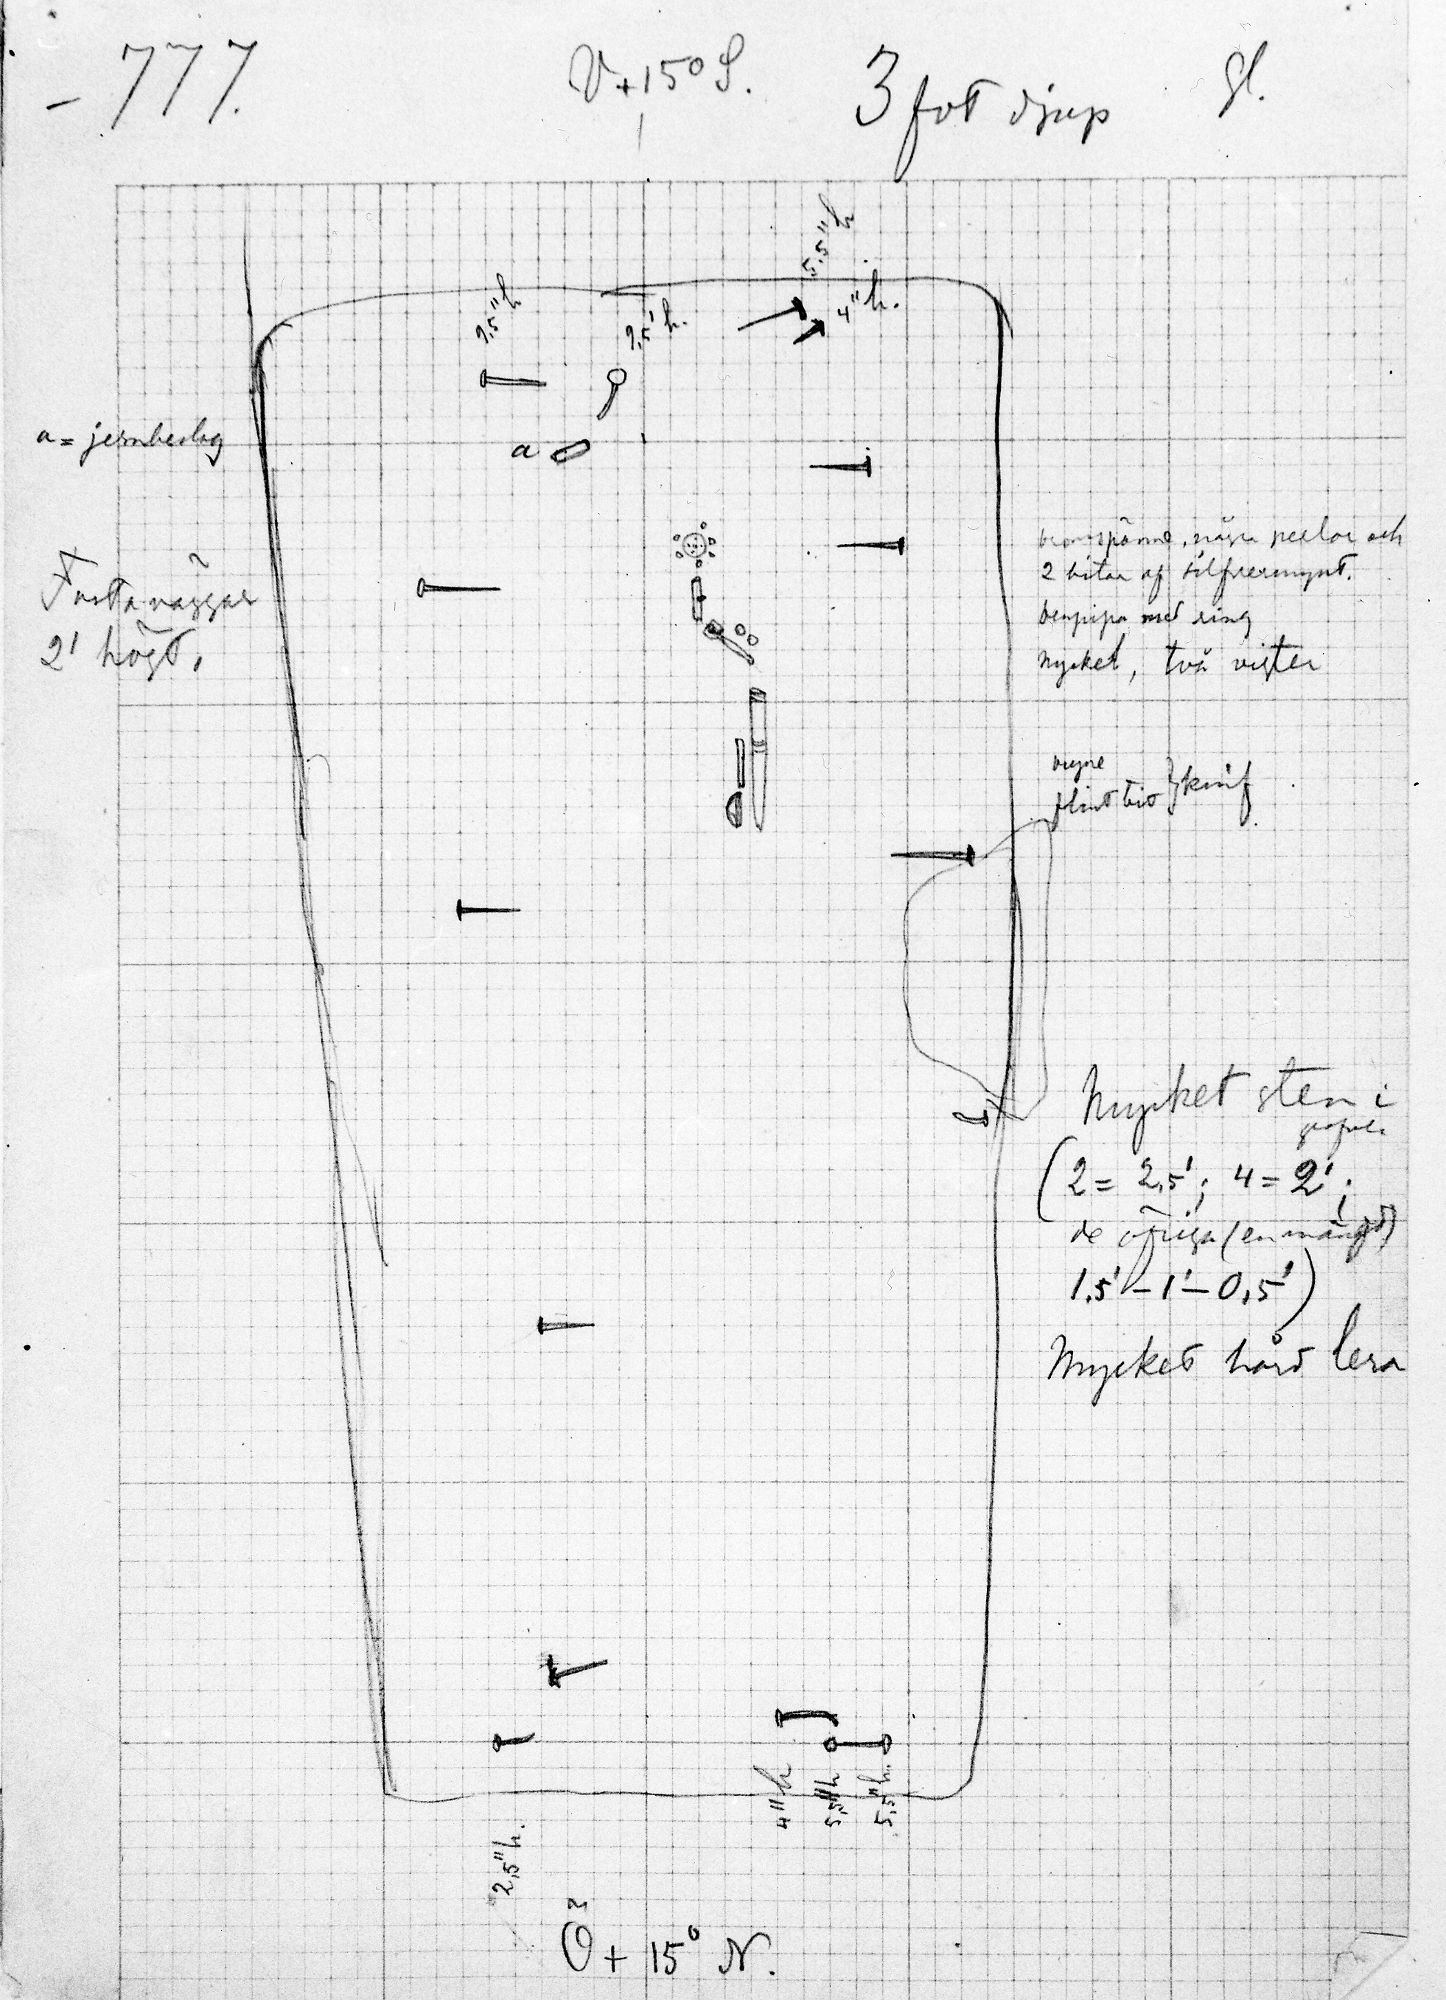 777.
V+15° S.
3 fot djup
gl.
5,5" h
4" h.
2,5" h
2,5' h.
a = jernbeslag
a
Fasta väggar
2' högt.
bronsspänne, några perlor och
2 bitar af silfvermynt.
benpipa med ring
nyckel, två
bryne
flint bit } knif
Mycket sten i
(2 = 2,5'; 4 = 2';
de öfriga (en mängd)
1,5' – 1' – 0,5')
Mycket hård lera
4" h
5,5" h
5,5" h.
2,5" h.
Ö + 15° N.